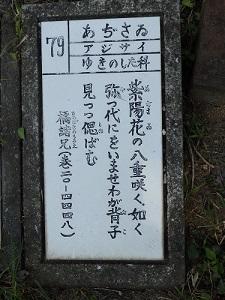 79
あぢさゐ
アジサイ
ゆきのした科
紫陽花の八重咲く如く
弥つ代にをいませわが背子
見つつ偲ばむ
橘諸兄(巻二〇-四四四八)